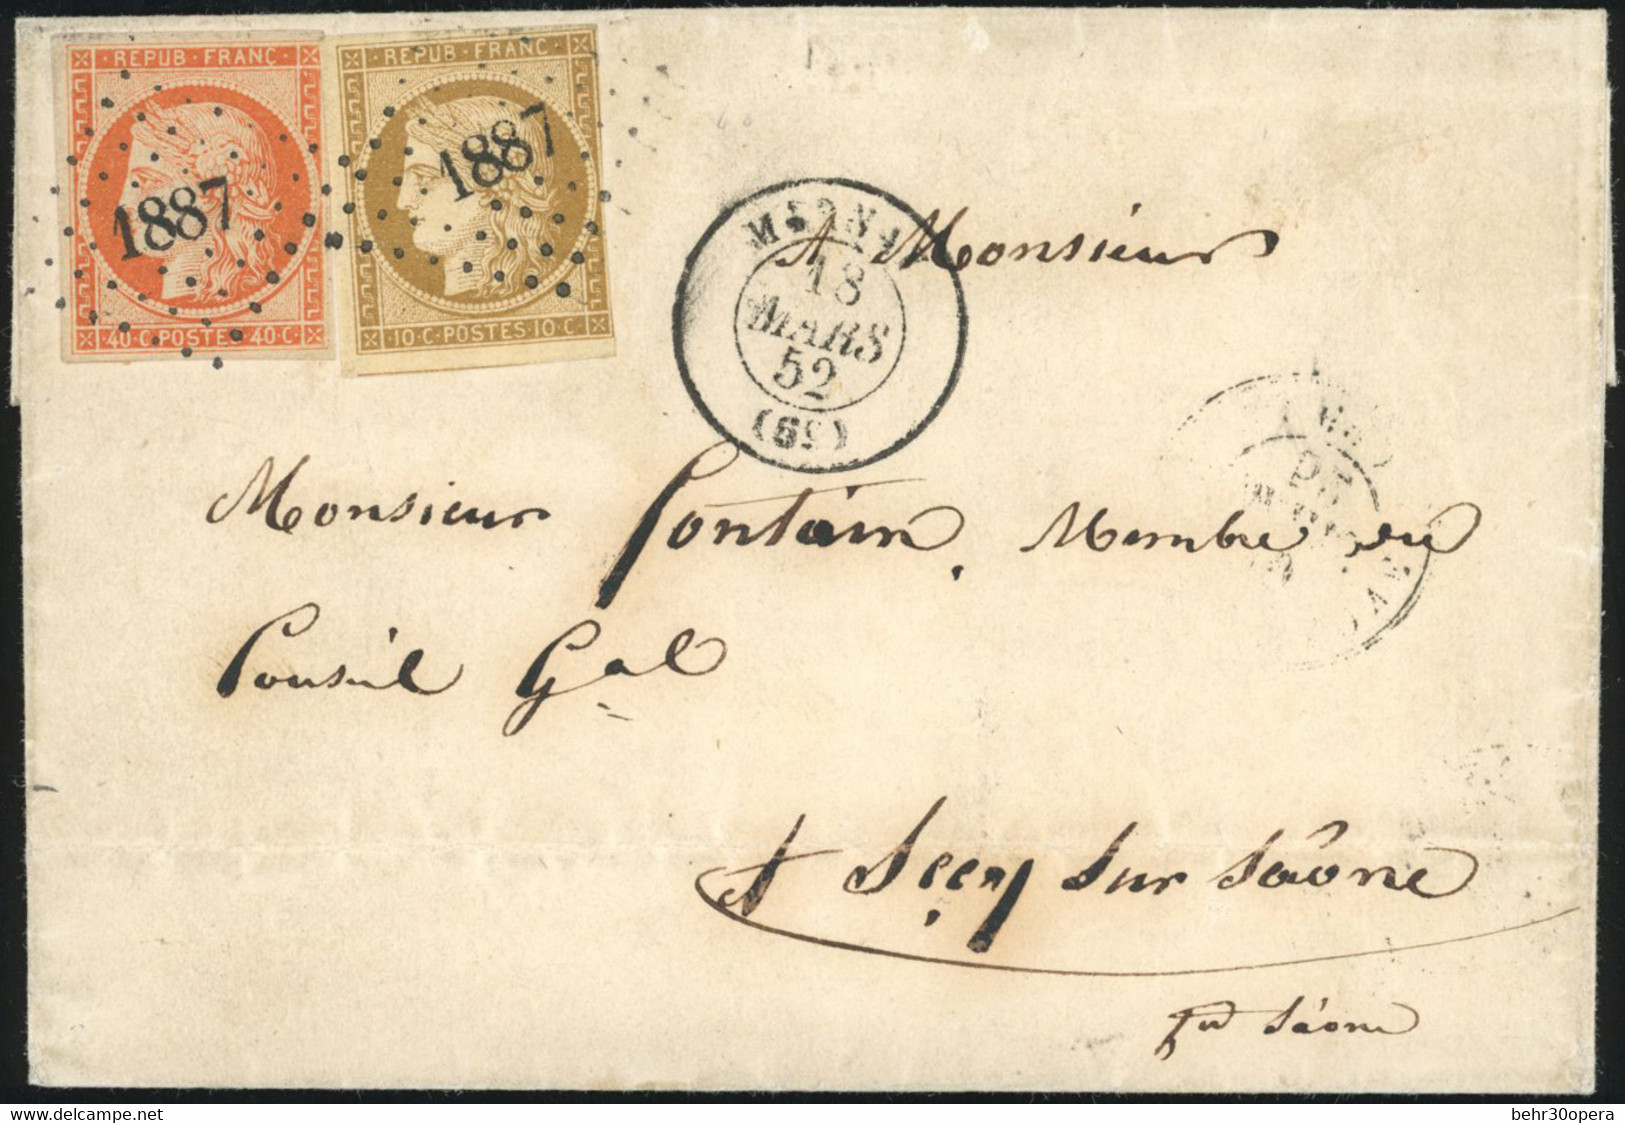 REPUB·FRANC
1887
40·C·POSTES·40·C·
REPUB·FRANC·
1887
10·C·POSTES·10·C·
18
MARS
52
(69)
A Monsieur
Monsieur Fontain, Membre du
Conseil Gal
A Scey sur Saône
hte Saone
delcampe.net
behr30opera